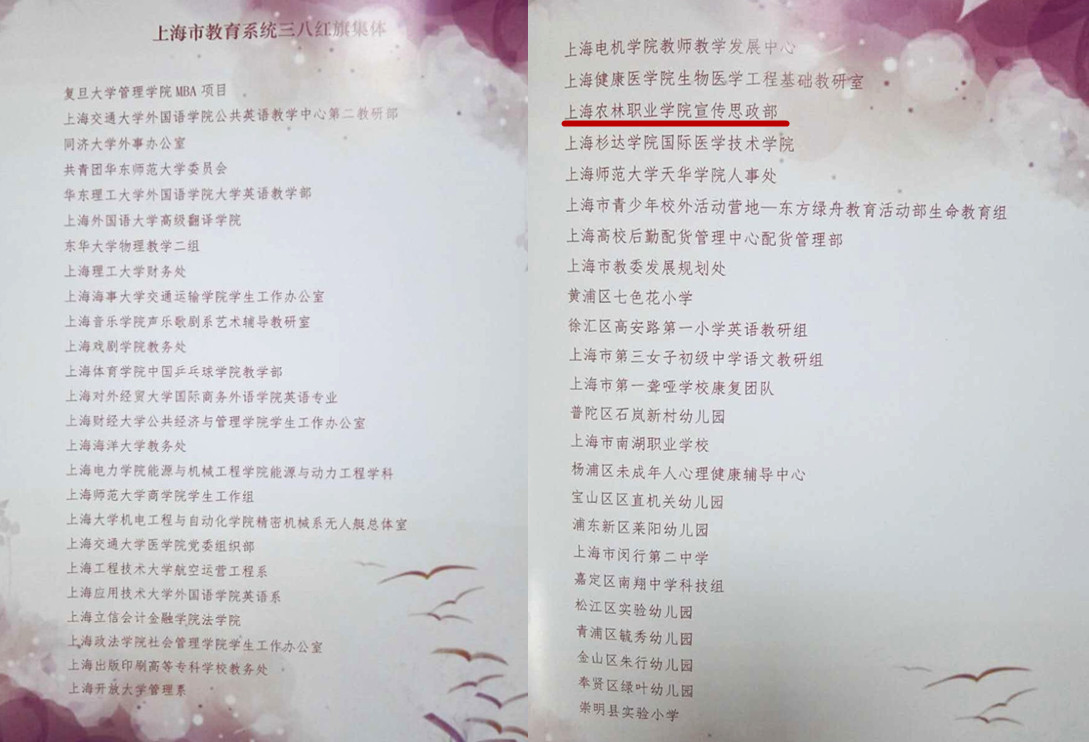 上海市教育系统三八红旗集体
复旦大学管理学院MBA项目
上海交通大学外国语学院公共英语教学中心第二教研部
同济大学外事办公室
共青团华东师范大学委员会
华东理工大学外国语学院大学英语教学部
上海外国语大学高级翻译学院
东华大学物理教学二组
上海理工大学财务处
上海海事大学交通运输学院学生工作办公室
上海音乐学院声乐歌剧系艺术辅导教研室
上海戏剧学院教务处
上海体育学院中国乒乓球学院教学部
上海对外经贸大学国际商务外语学院英语专业
上海财经大学公共经济与管理学院学生工作办公室
上海海洋大学教务处
上海电力学院能源与机械工程学院能源与动力工程学科
上海师范大学商学院学生工作组
上海大学机电工程与自动化学院精密机械系无人艇总体室
上海交通大学医学院党委组织部
上海工程技术大学航空运营工程系
上海应用技术大学外国语学院英语系
上海立信会计金融学院法学院
上海政法学院社会管理学院学生工作办公室
上海出版印刷高等专科学校教务处
上海开放大学管理系
上海电机学院教师教学发展中心
上海健康医学院生物医学工程基础教研室
上海农林职业学院宣传思政部
上海杉达学院国际医学技术学院
上海师范大学天华学院人事处
上海市青少年校外活动营地—东方绿舟教育活动部生命教育组
上海高校后勤配货管理中心配货管理部
上海市教委发展规划处
黄浦区七色花小学
徐汇区高安路第一小学英语教研组
上海市第三女子初级中学语文教研组
上海市第一聋哑学校康复团队
普陀区石岚新村幼儿园
上海市南湖职业学校
杨浦区未成年人心理健康辅导中心
宝山区区直机关幼儿园
浦东新区莱阳幼儿园
上海市闵行第二中学
嘉定区南翔中学科技组
松江区实验幼儿园
青浦区毓秀幼儿园
金山区朱行幼儿园
奉贤区绿叶幼儿园
崇明县实验小学